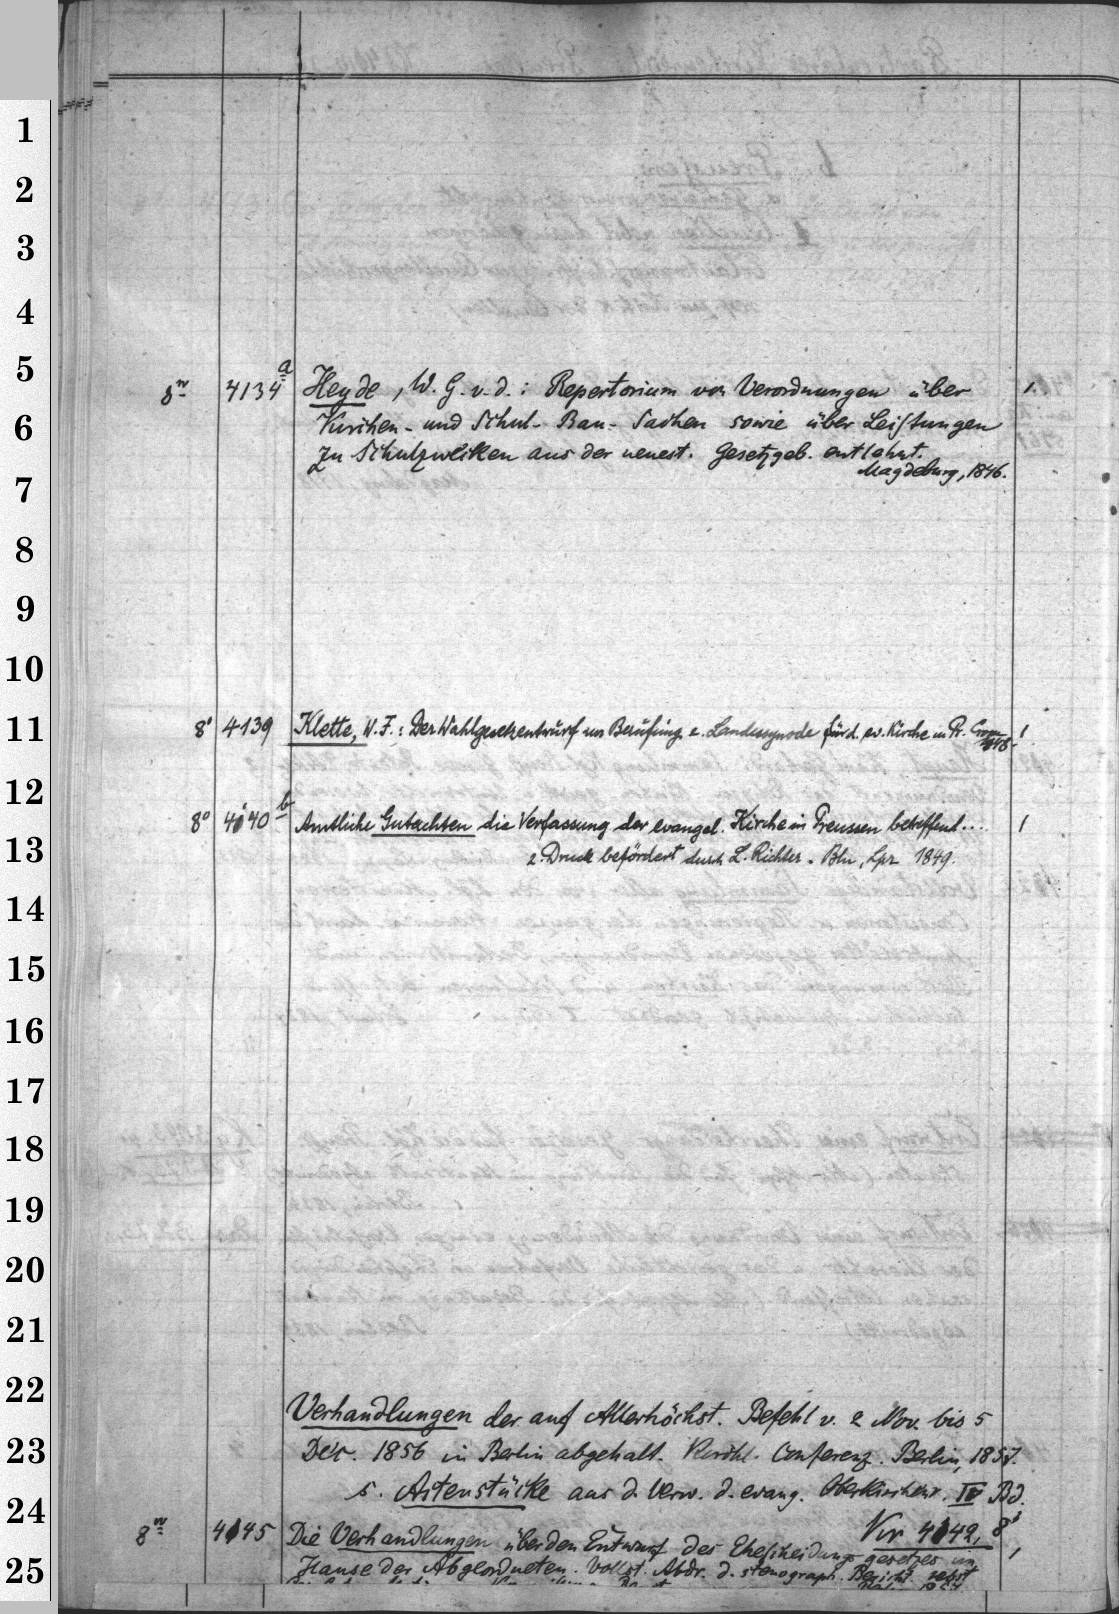 1
2
3
4
5
6
7
8
9
10
11
12
13
14
15
16
17
18
19
20
21
22
23
24
25
8º 4134 a Heyde, W. G. v. d.: Repertorium von Verordnungen über 1.
Kirchen- und Schul- Bau- Sachen sowie über Leistungen
zu Schulzwecken aus der neuest. Gesetzgeb. entlehnt.
Magdeburg, 1846.
8º 4139 Klette, W. F.: Der Wahlgesetzentwurf zur Berufung e. Landessynode für d. ev. Kirche in Pr. 1
1848.
8º 4140 b Amtliche Gutachten die Verfassung der evangel. Kirche in Preussen betreffend... 1
z. Druck befördert durch L. Richter. Bln, Lpz 1849.
Verhandlungen der auf Allerhöchst. Befehl v. 2 Nov. bis 5
Dec. 1856 in Berlin abgehalt. Kirchl. Conferenz. Berlin, 1857.
s. Actenstücke aus d. Verw. d. evang. Oberkirchenr. IV Bd.
4149, 8º
8º 4145 Die Verhandlungen über den Entwurf des Ehescheidungsgesetzes im 1
Hause der Abgeordneten. Vollst. Abdr. d. stenograph. Bericht. nebst